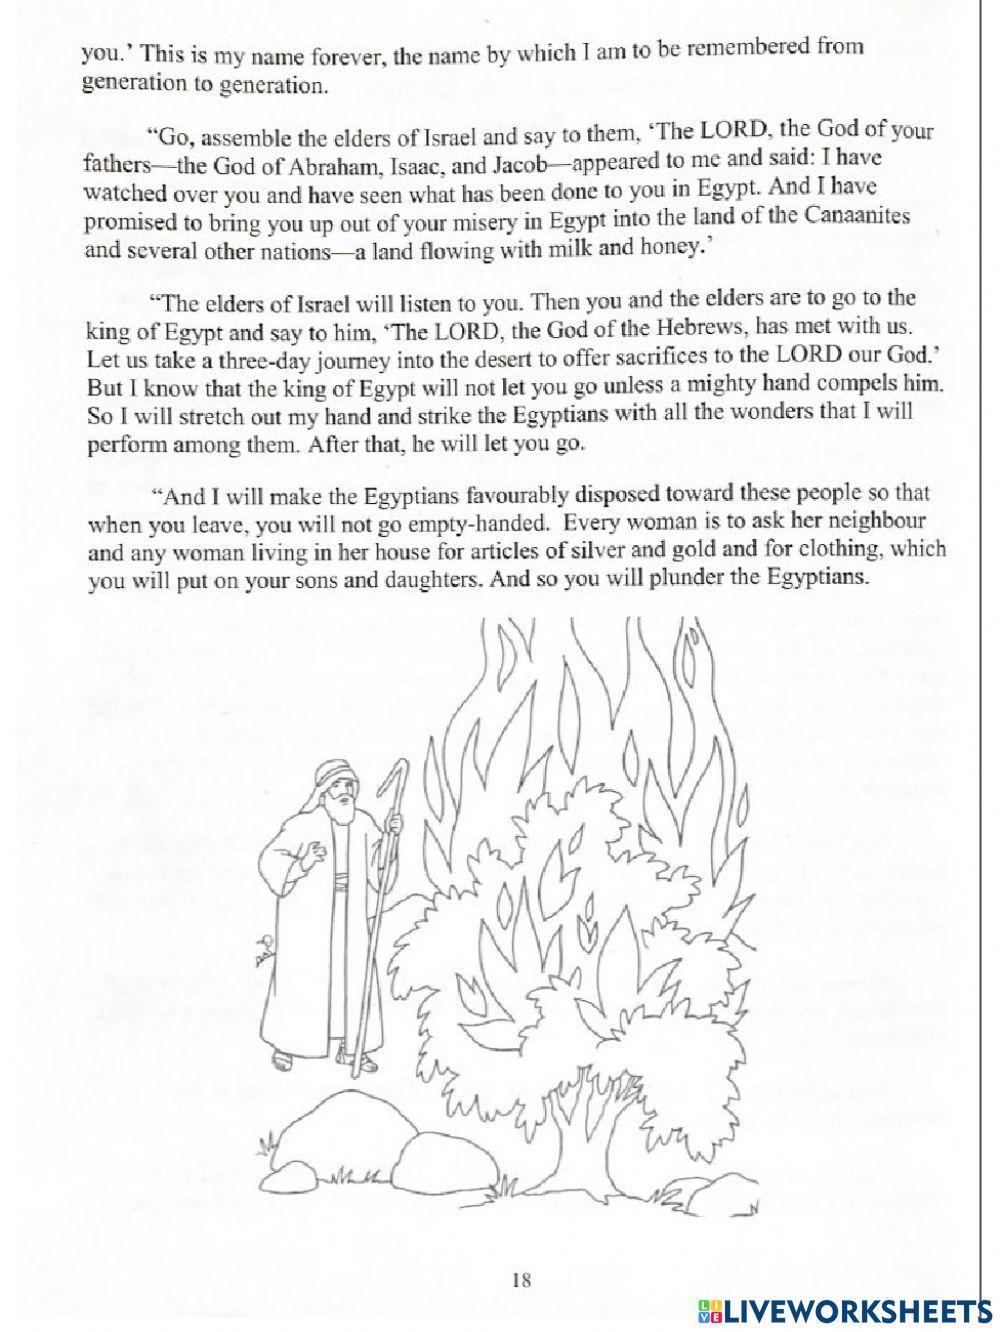 you.’ This is my name forever, the name by which I am to be remembered from
generation to generation.
“Go, assemble the elders of Israel and say to them, ‘The LORD, the God of your
fathers—the God of Abraham, Isaac, and Jacob—appeared to me and said: I have
watched over you and have seen what has been done to you in Egypt. And I have
promised to bring you up out of your misery in Egypt into the land of the Canaanites
and several other nations—a land flowing with milk and honey.’
“The elders of Israel will listen to you. Then you and the elders are to go to the
king of Egypt and say to him, ‘The LORD, the God of the Hebrews, has met with us.
Let us take a three-day journey into the desert to offer sacrifices to the LORD our God.’
But I know that the king of Egypt will not let you go unless a mighty hand compels him.
So I will stretch out my hand and strike the Egyptians with all the wonders that I will
perform among them. After that, he will let you go.
“And I will make the Egyptians favourably disposed toward these people so that
when you leave, you will not go empty-handed. Every woman is to ask her neighbour
and any woman living in her house for articles of silver and gold and for clothing, which
you will put on your sons and daughters. And so you will plunder the Egyptians.
18
LIVE LIVEWORKSHEETS